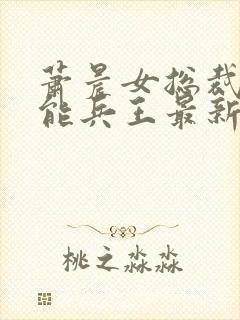 萧晨女总裁
能兵王最新
桃之淼淼